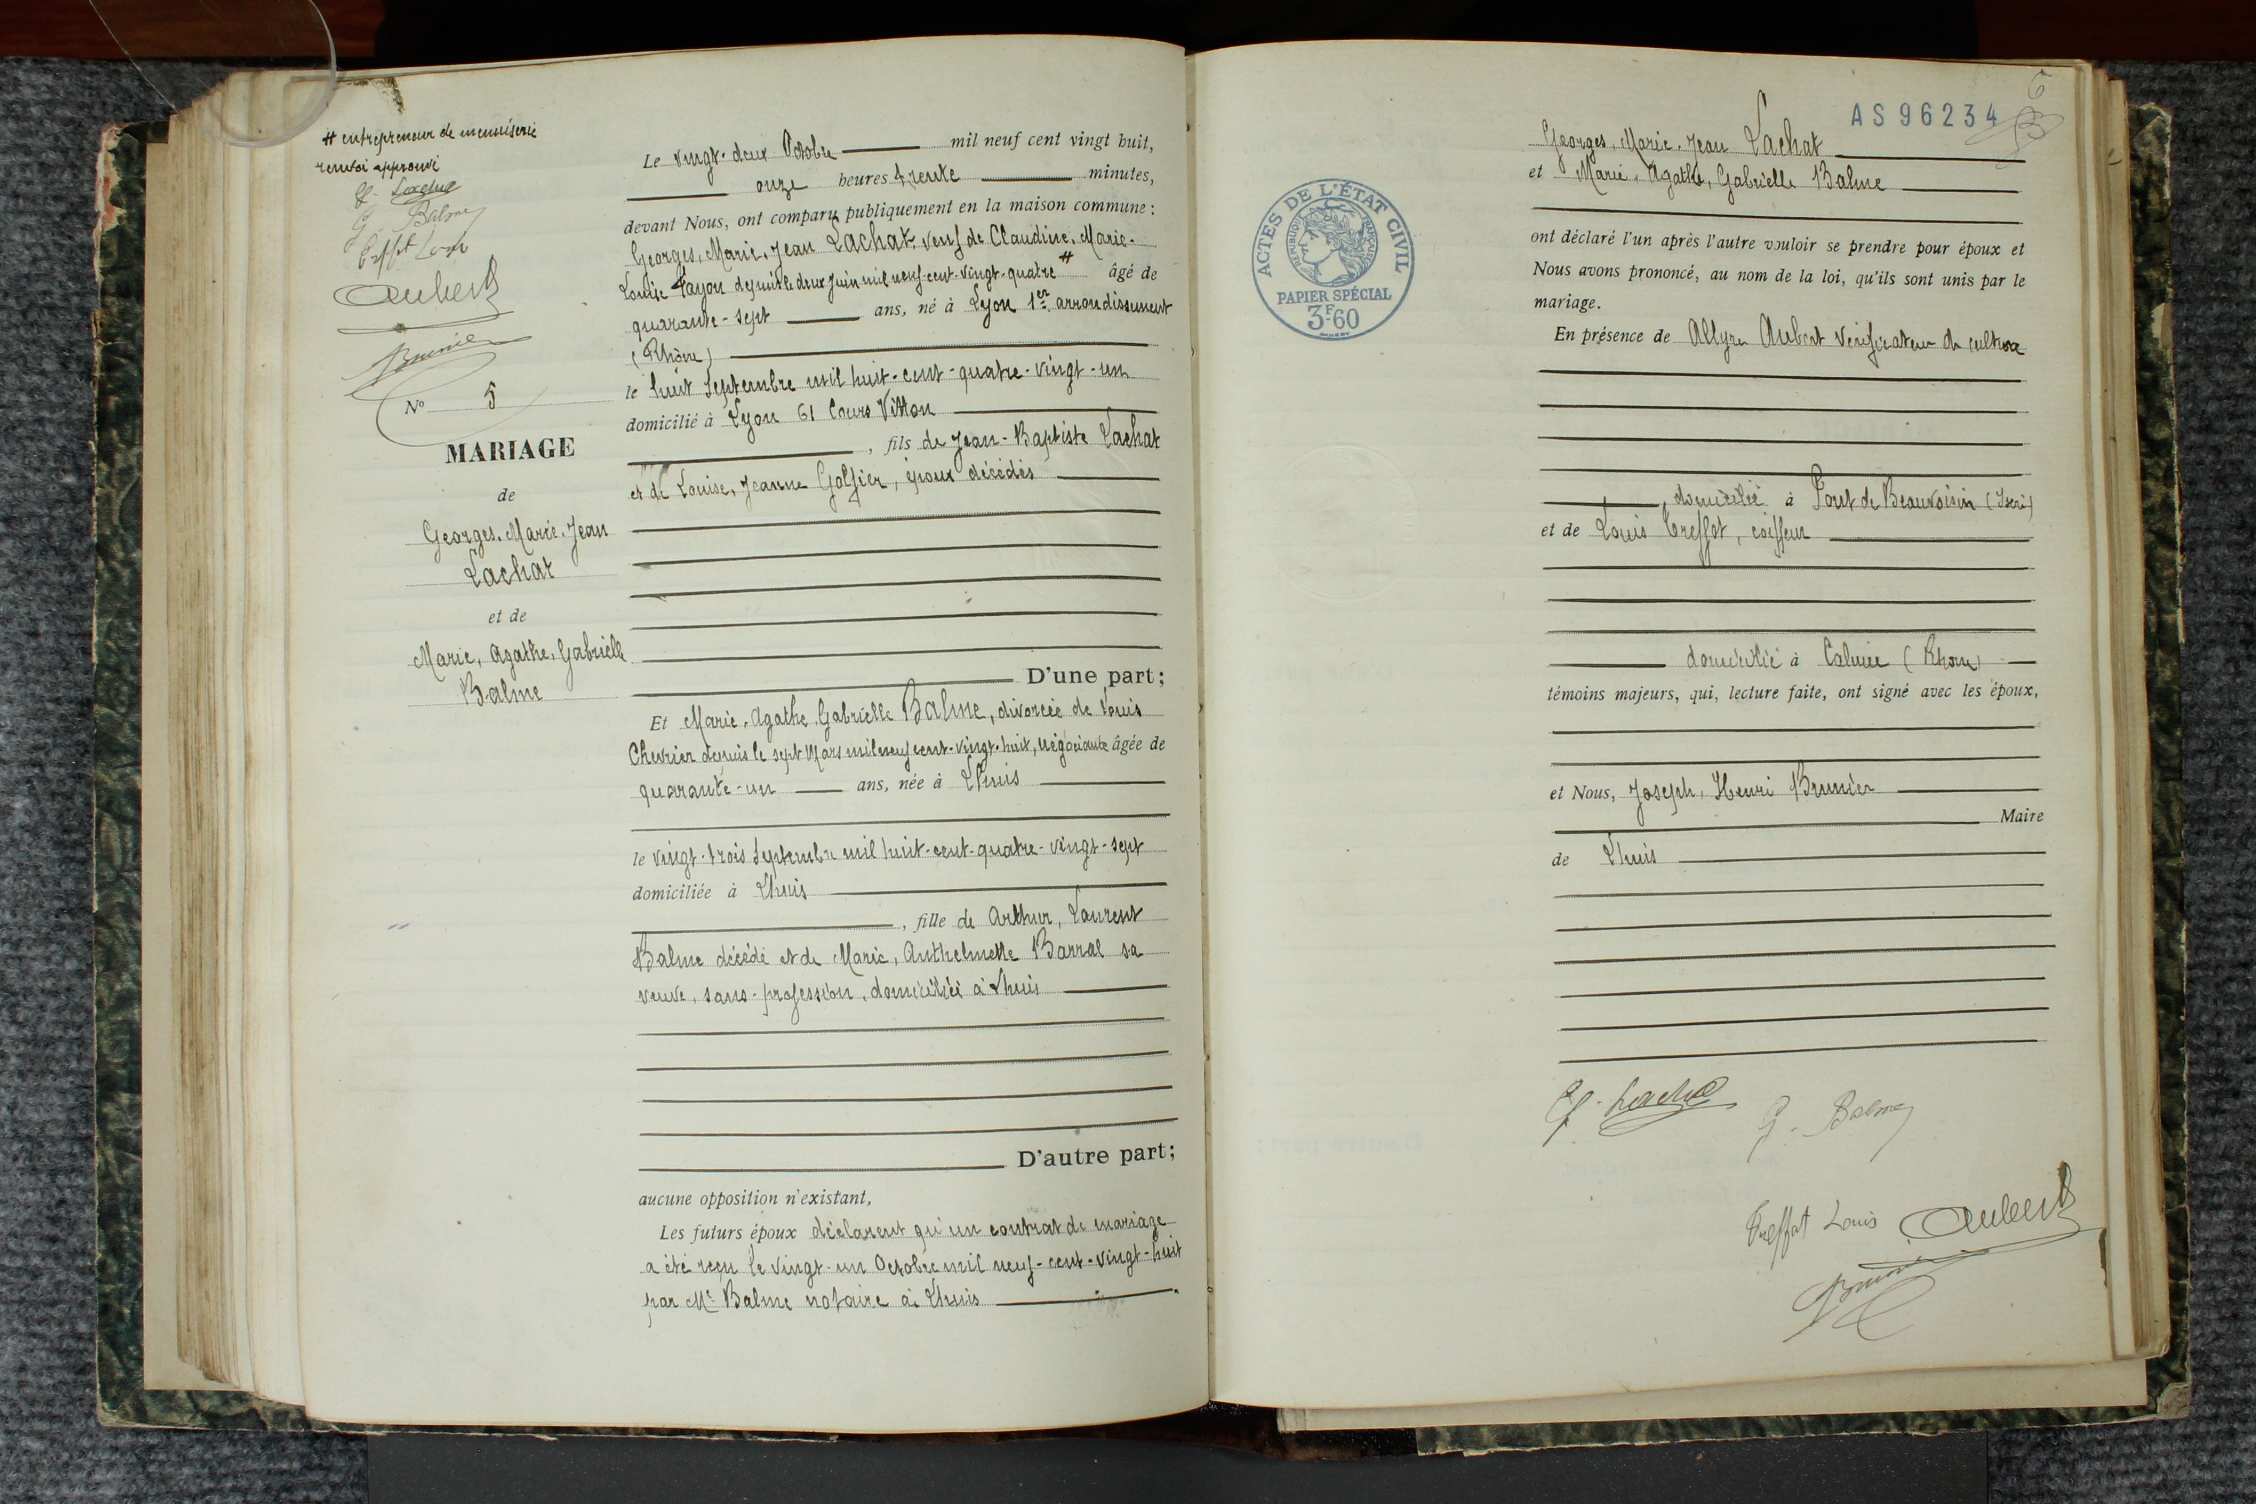 # entrepreneur de menuiserie
renvoi approuvé
G. Lachat
G. Balme
Treffot Louis
Aubert
Brunier
No 5
MARIAGE
de
Georges, Marie, Jean
Lachat
et de
Marie, Agathe, Gabrielle
Balme
Le vingt-deux Octobre mil neuf cent vingt huit,
onze heures trente minutes,
devant Nous, ont comparu publiquement en la maison commune :
Georges, Marie, Jean Lachat, veuf de Claudine, Marie-
Louise Fayon depuis le deux Juin mil neuf-cent-vingt-quatre # âgé de
quarante-sept ans, né à Lyon 1er arrondissement
(Rhône)
le huit Septembre mil huit-cent-quatre-vingt-un
domicilié à Lyon 61 Cours Vitton
, fils de Jean-Baptiste Lachat
et de Louise, Jeanne Golfier, époux décédés
D'une part ;
Et Marie, Agathe, Gabrielle Balme, divorcée de Louis
Chevrier depuis le sept Mars mil neuf cent-vingt-huit, négociante âgée de
quarante-un ans, née à Lhuis
le vingt-trois Septembre mil huit-cent-quatre-vingt-sept
domiciliée à Lhuis
, fille de Arthur, Laurent
Balme décédé et de Marie, Anthelmette Barral sa
veuve, sans-profession, domiciliée à Lhuis
D'autre part ;
aucune opposition n'existant,
Les futurs époux déclarent qu'un contrat de mariage
a été reçu le vingt-un Octobre mil neuf-cent-vingt-huit
par Me Balme notaire à Lhuis
AS 96234
6
ACTES DE L'ÉTAT CIVIL
RÉPUBLIQUE FRANÇAISE
PAPIER SPÉCIAL
3F.60
Georges, Marie, Jean Lachat
et Marie, Agathe, Gabrielle Balme
ont déclaré l'un après l'autre vouloir se prendre pour époux et
Nous avons prononcé, au nom de la loi, qu'ils sont unis par le
mariage.
En présence de Allyre Aubert vérificateur de culture
domicilié à Pont de Beauvoisin (Isère)
et de Louis Treffot, coiffeur
domicilié à Caluire (Rhône)
témoins majeurs, qui, lecture faite, ont signé avec les époux,
et Nous, Joseph, Henri Brunier
Maire
de Lhuis
G. Lachat
G. Balme
Treffot Louis
Aubert
Brunier